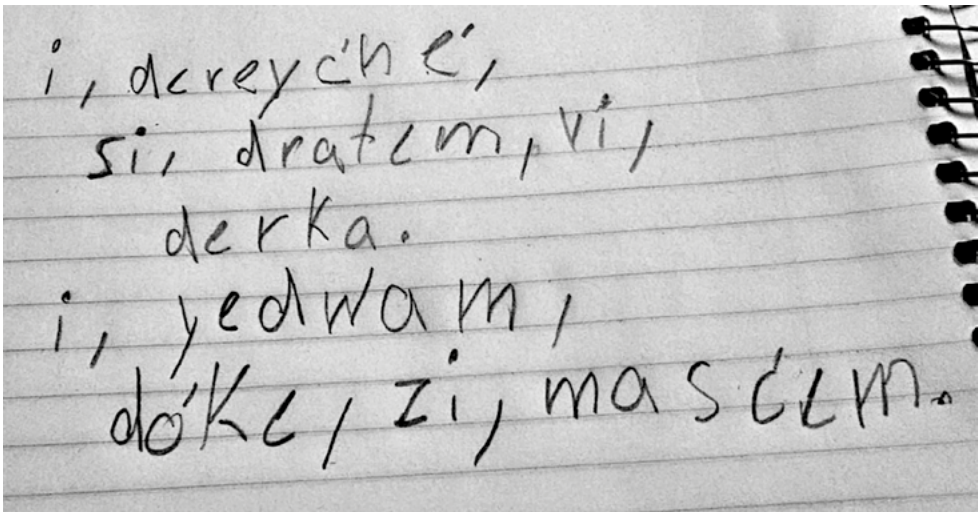 i, dereyćhé,
si, dratem, vi,
derka.
i, yedwam,
dóke, zi, masćem.